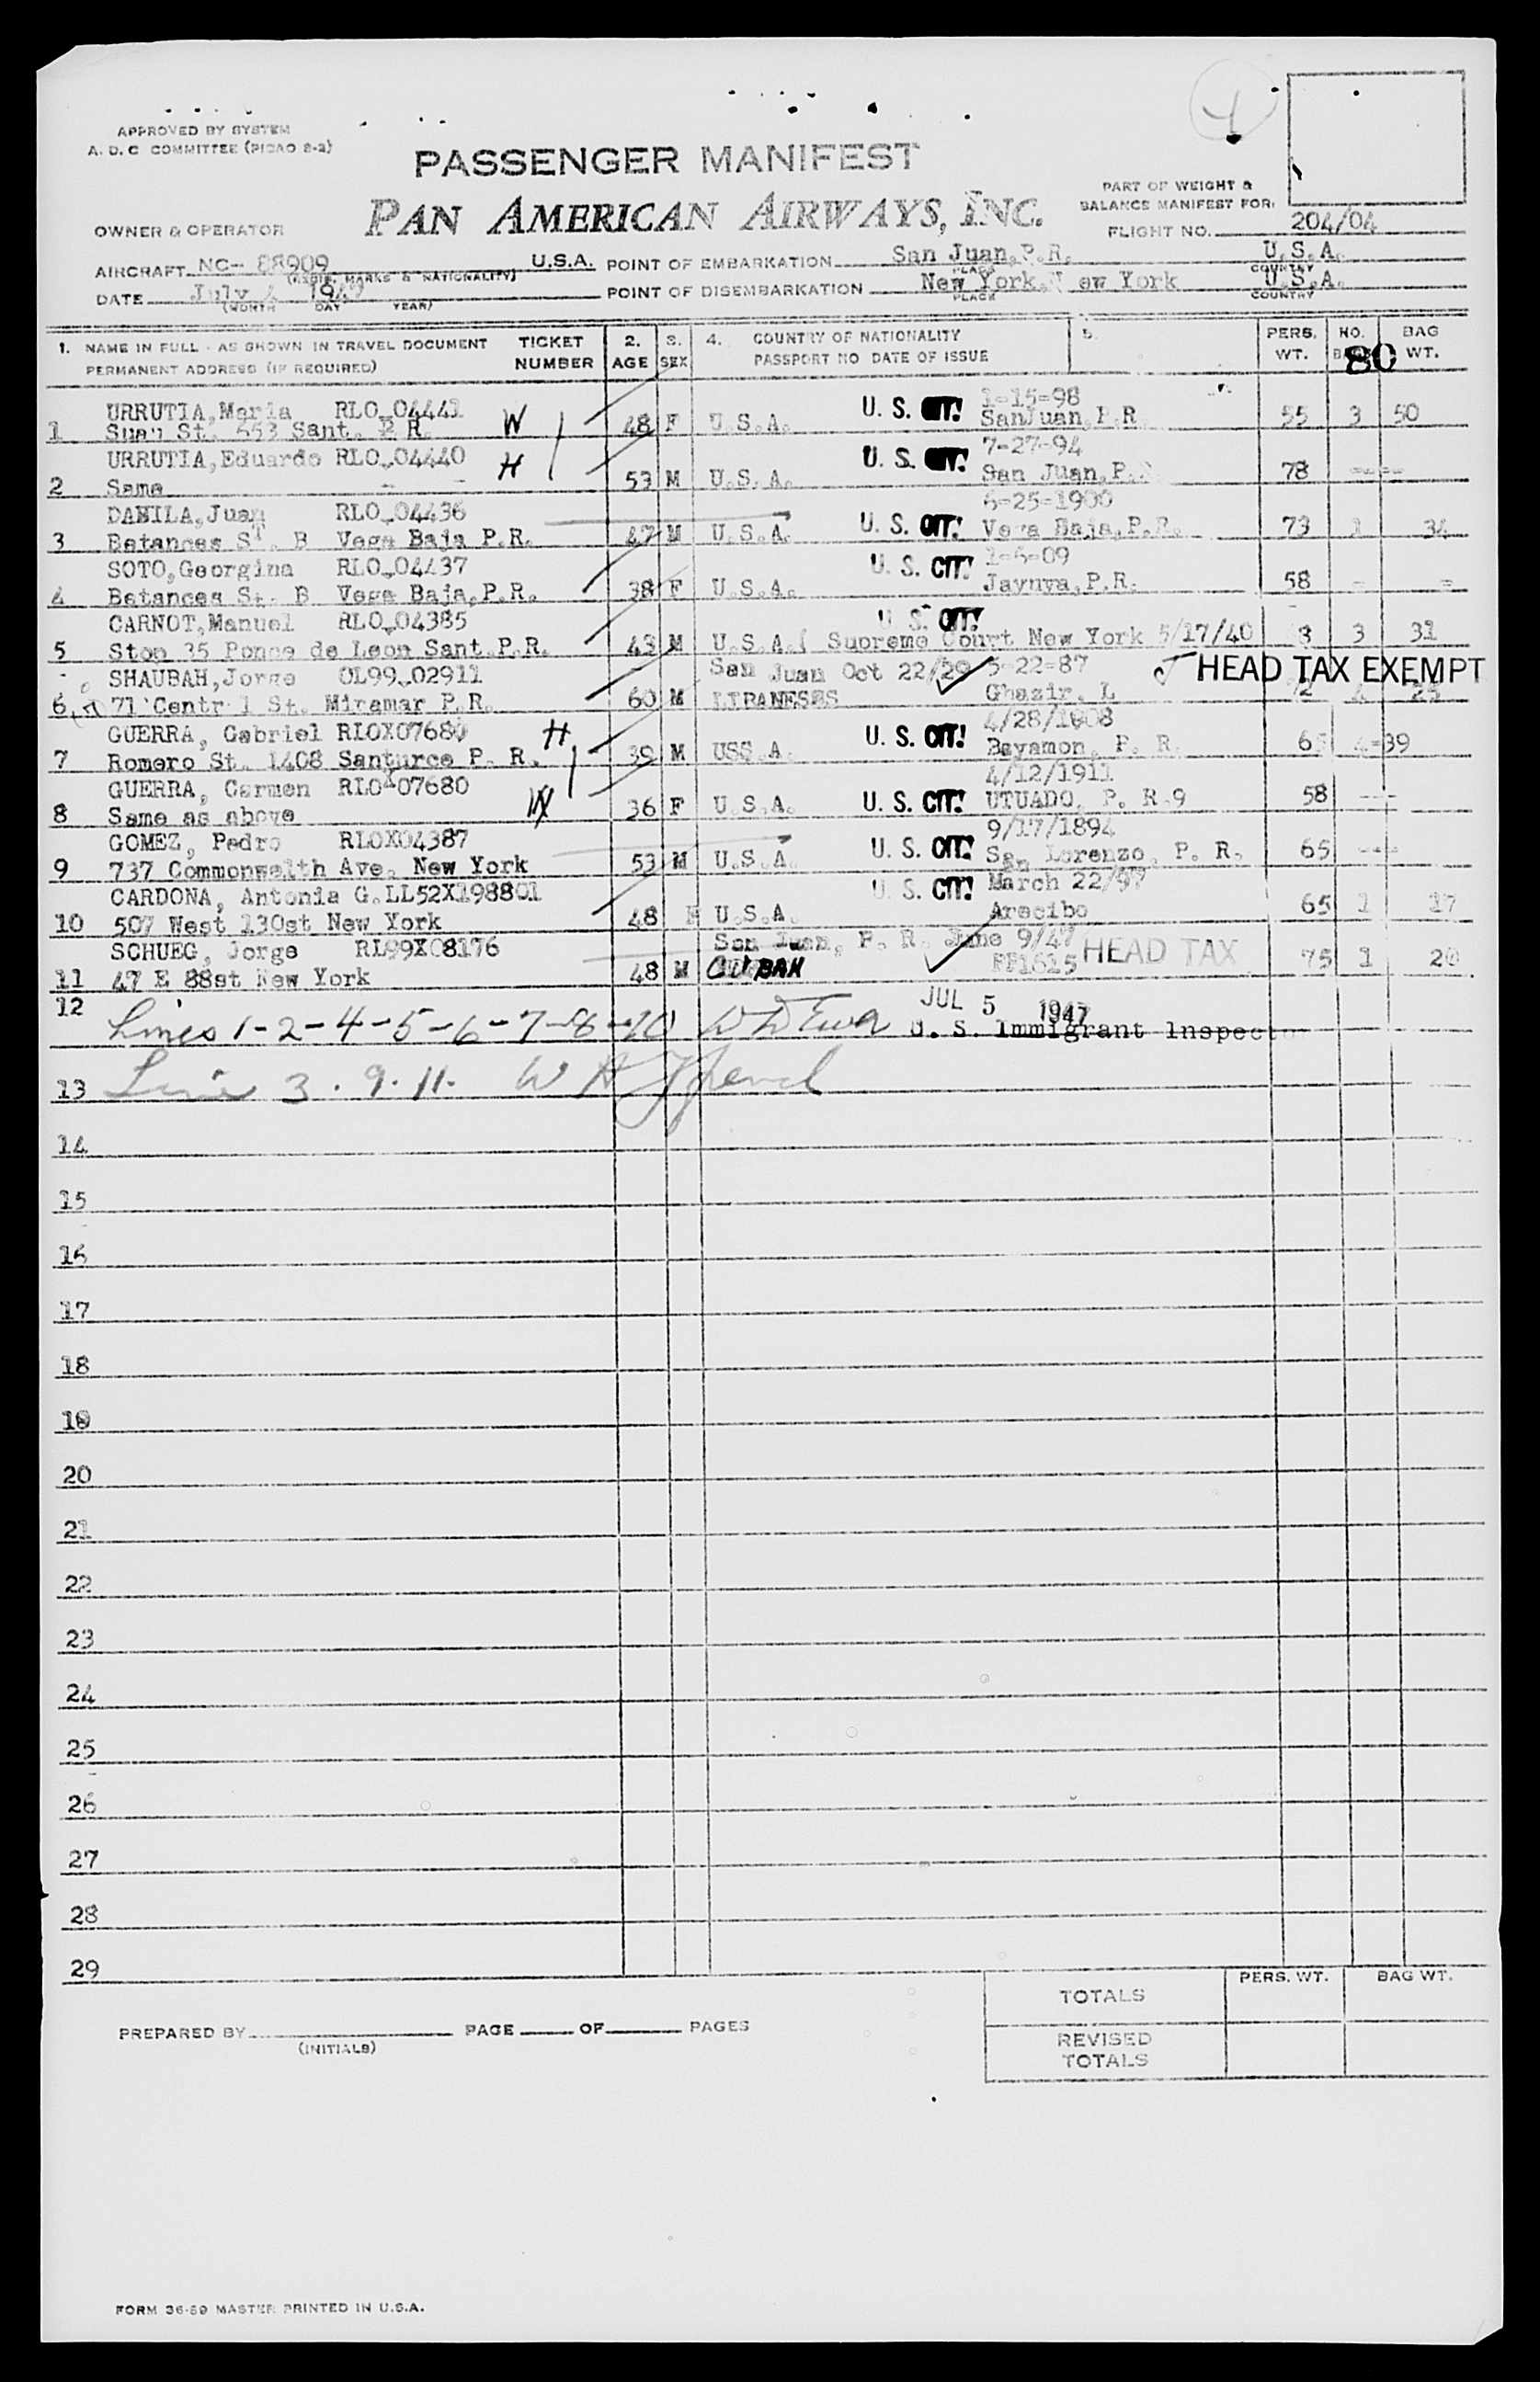 4
APPROVED BY SYSTEM
A. D. C COMMITTEE (PICAO 8-2)
PASSENGER MANIFEST
PAN AMERICAN AIRWAYS, INC.
PART OF WEIGHT &
BALANCE MANIFEST FOR:
FLIGHT NO. 204/04
OWNER & OPERATOR
AIRCRAFT NC- 88909 U.S.A. POINT OF EMBARKATION San Juan, P.R. U.S.A.
MARKS & NATIONALITY) PLACE COUNTRY
DATE July 194 POINT OF DISEMBARKATION New York, N ew York U.S.A.
(MONTH DAY YEAR) PLACE COUNTRY
1. NAME IN FULL - AS SHOWN IN TRAVEL DOCUMENT TICKET 2. 3. 4. COUNTRY OF NATIONALITY 5. PERS. NO. BAG
PERMANENT ADDRESS (IF REQUIRED) NUMBER AGE SEX PASSPORT NO DATE OF ISSUE WT. 80 WT.
URRUTIA, Maria RLO 04441 W U. S. CIT! 1-15-98
1 St. 553 Sant. P R. 48 F U.S.A. SanJuan, P.R 55 3 50
URRUTIA, Eduardo RLO 04440 H U. S. CIT! 7-27-94
2 Same 53 M U.S.A. San Juan, P. 78 ----
DAMILA, Juan RLO 04436 6-25-1900
3 Betances ST. B Vega Baja P.R. 47 M U.S.A. U. S. CIT! Vega Baja, P.R. 73 1 34
SOTO, Georgina RLO 04437 U. S. CIT! 1-6-09
4 Betances St. B Vega Baja, P.R. 38 F U.S.A. Jayuya, P.R. 58 - -
CARNOT, Manuel RLO 04385 U. S. CIT!
5 Stop 35 Ponce de Leon Sant. P.R. 43 M U.S.A.( Supreme Court New York 5/17/40 3 31
SHAUBAH, Jorge OL99 02911 San Juan Oct 22/29 5-22-87 HEAD TAX EXEMPT
6 71 Centr l St. Miramar P.R. 60 M LIBANESES Ghazir, L 25
GUERRA, Gabriel RLOX07680 H 4/28/1908
7 Romero St. 1408 Santurce P. R. 39 M USS.A. U. S. CIT! Bayamon, P. R. 4-39
GUERRA, Carmen RLOX07680 W 4/12/1911
8 Same as above 36 F U.S.A. U. S. CIT! UTUADO, P. R.9 58 ---
GOMEZ, Pedro RLOX04387 9/17/1894
9 737 Commonwelth Ave. New York 53 M U.S.A. U. S. CIT! San Lorenzo, P. R. 65 ---
CARDONA, Antonia G. LL52X198801 U. S. CIT! March 22/97
10 507 West 130st New York 48 F U.S.A. Arecibo 65 1 17
SCHUEG, Jorge RL99X08176 San Juan, P. R. June 9/47 HEAD TAX
11 47 E 88st New York 48 M CUBAN 1615 75 1 20
12 Lines 1-2-4-5-6-7-8-10 JUL 5 1947 U. S. Immigrant Inspecto
13 Line 3. 9. 11. W H
14
15
16
17
18
19
20
21
22
23
24
25
26
27
28
29
PERS. WT. BAG WT.
TOTALS
PREPARED BY PAGE OF PAGES
(INITIALS)
REVISED
TOTALS
FORM 36-59 MASTER PRINTED IN U.S.A.